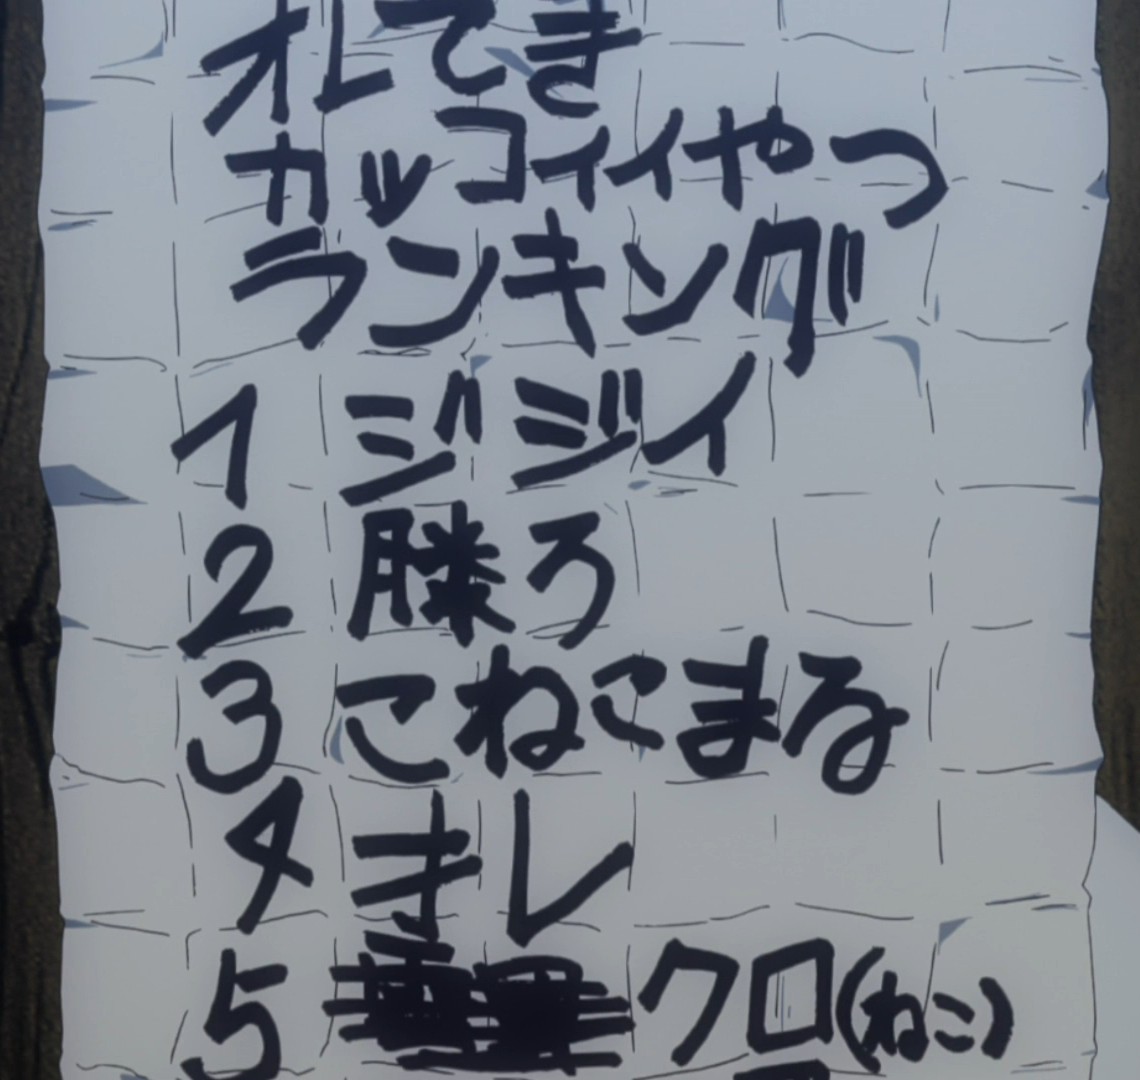 オレてき
カッコイイやつ
ランキング
1 ジジイ
2 勝ろ
3 こねこまる
4 オレ
5 クロ(ねこ)